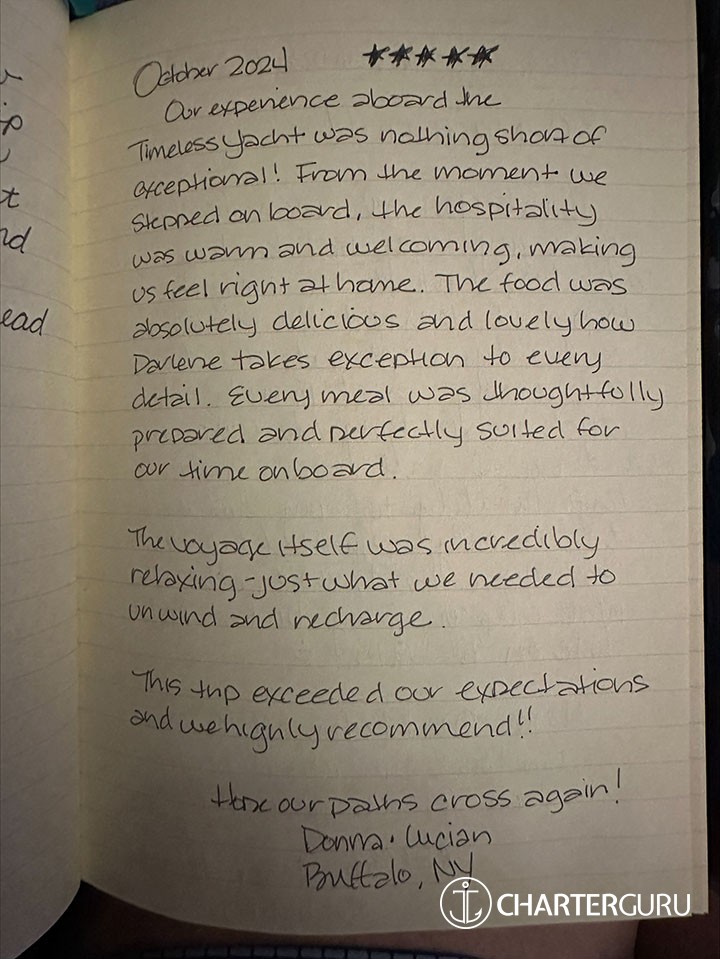 October 2024 ★★★★★
Our experience aboard the
Timeless Yacht was nothing short of
exceptional! From the moment we
stepped on board, the hospitality
was warm and welcoming, making
us feel right at home. The food was
absolutely delicious and lovely how
Darlene takes exception to every
detail. Every meal was thoughtfully
prepared and perfectly suited for
our time onboard.
The voyage itself was incredibly
relaxing - just what we needed to
unwind and recharge.
This trip exceeded our expectations
and we highly recommend!!
Hope our paths cross again!
Donna · Lucian
Buffalo, NY
CHARTERGURU
nd
ead